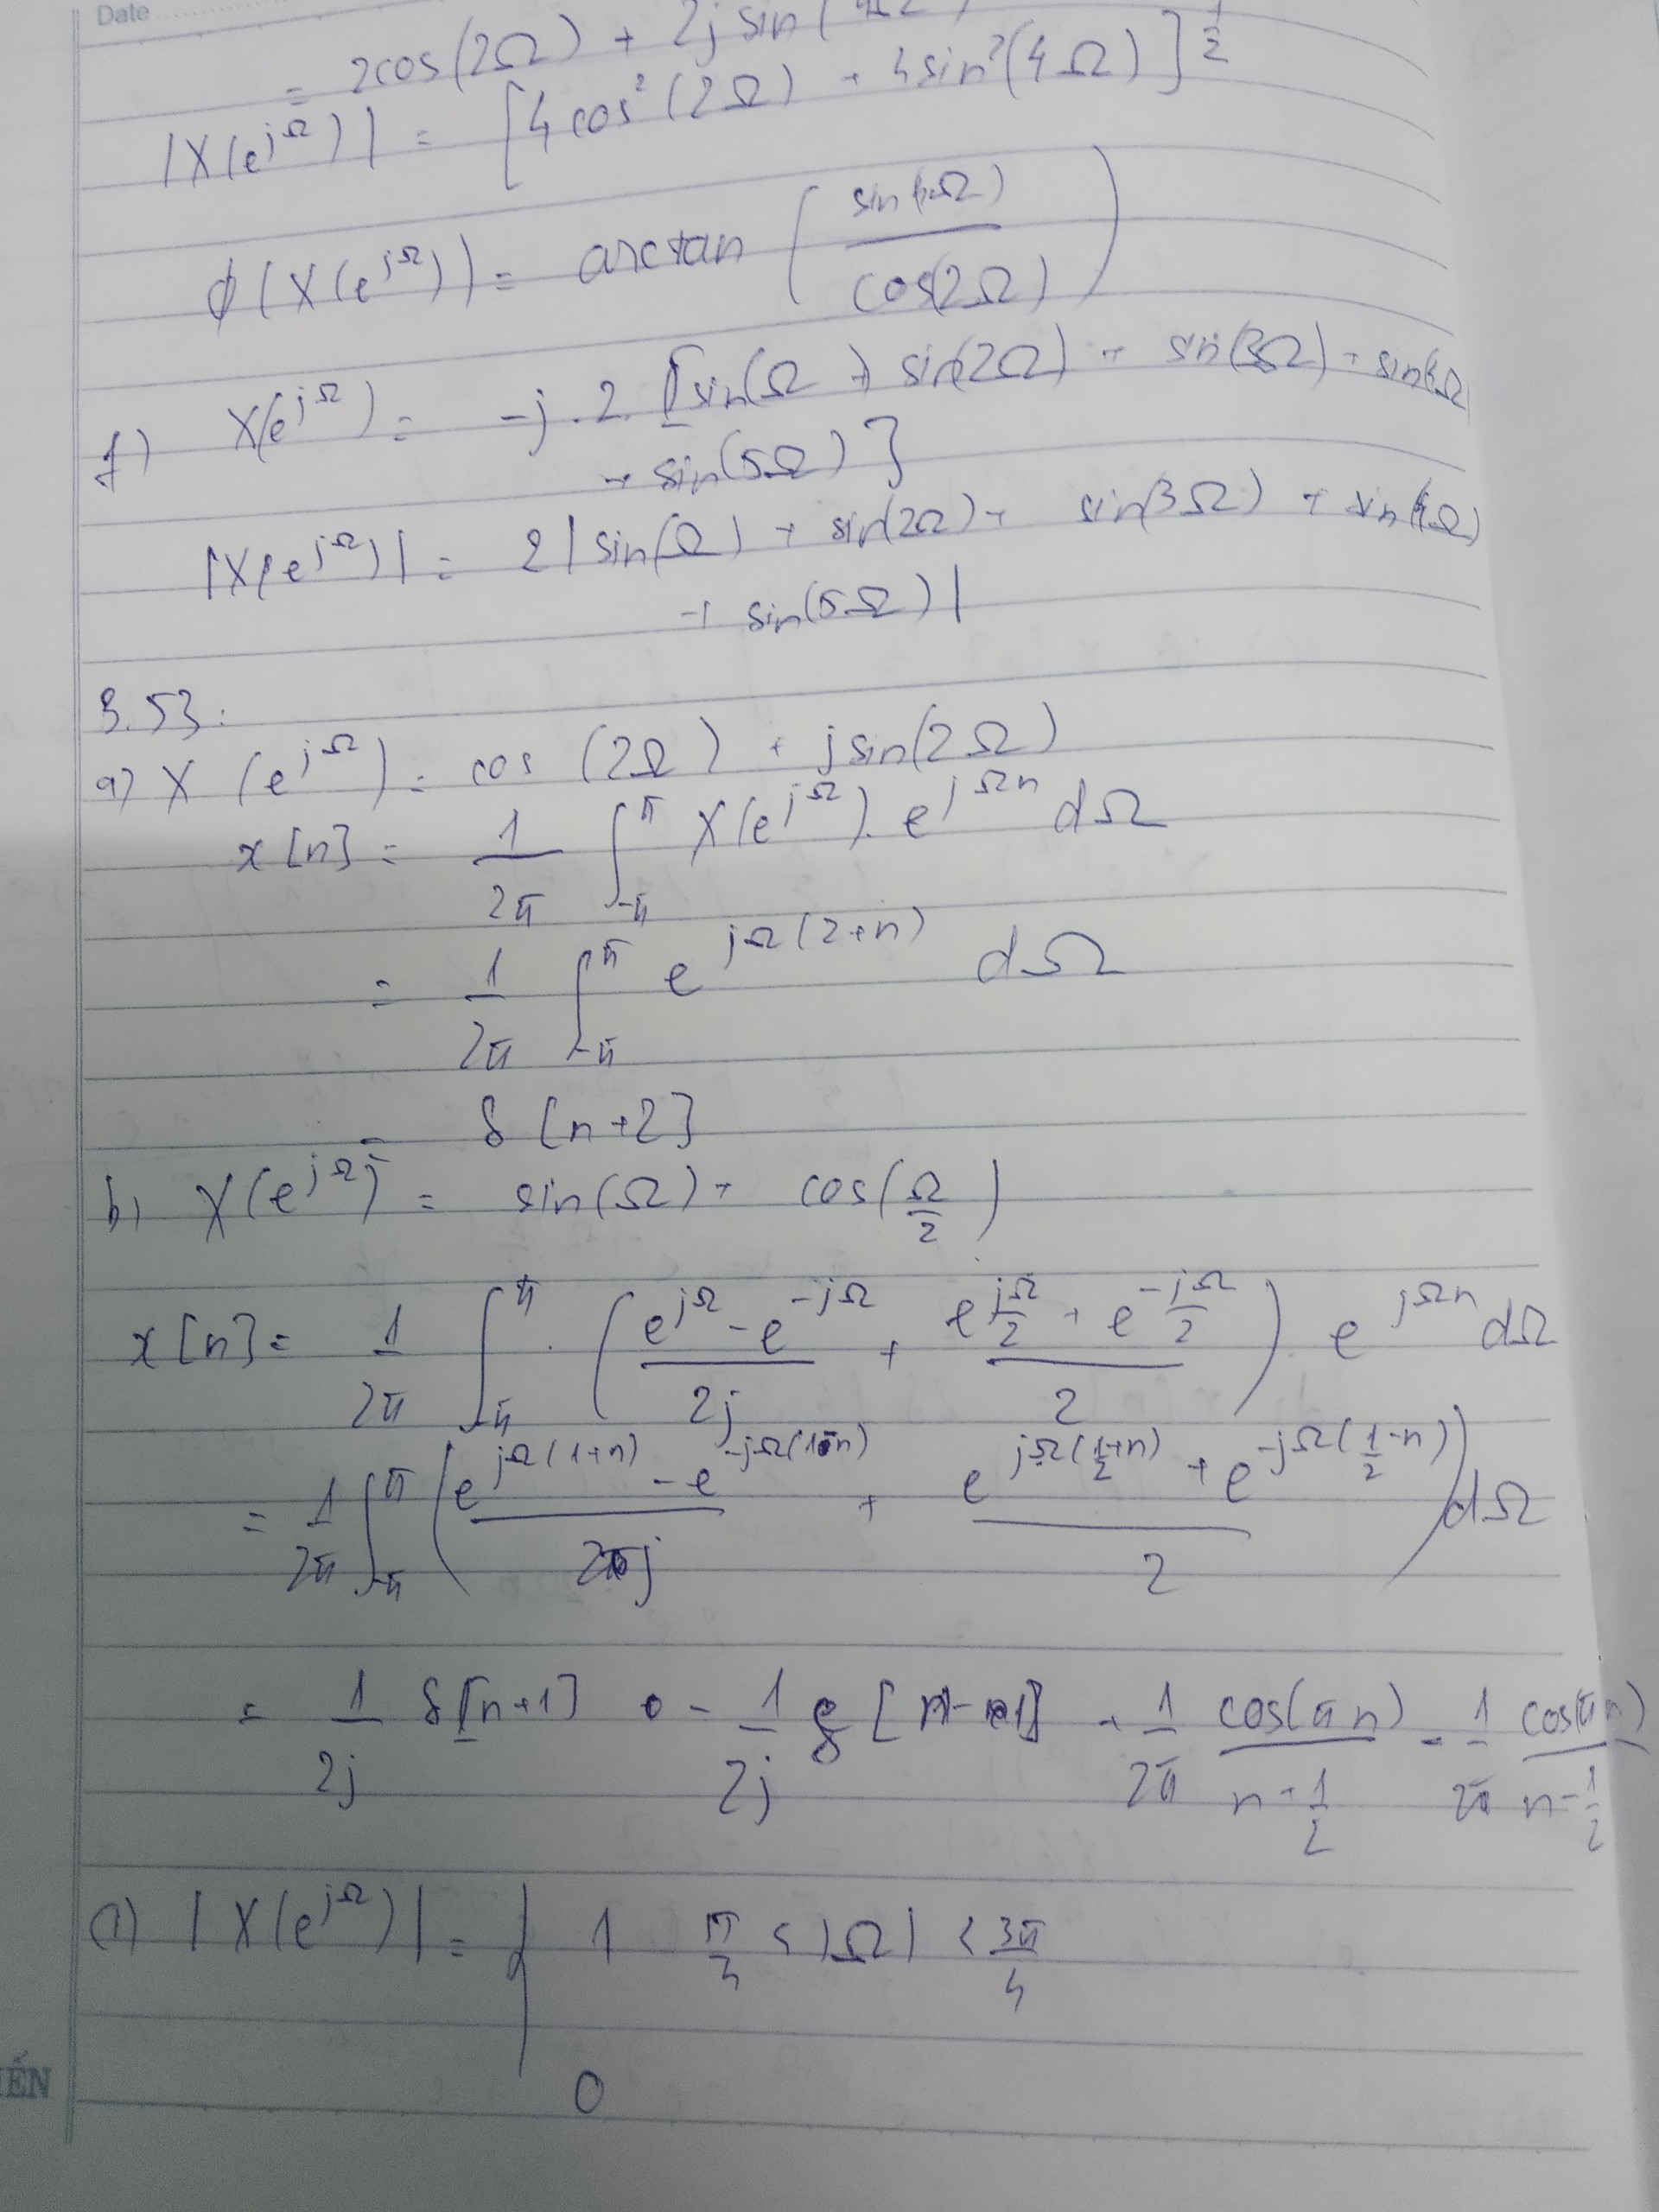 Date
= 2cos(2Ω) + 2j sin(4Ω)
|X(e^{jΩ})| = [4cos²(2Ω) + 4sin²(4Ω)]^{1/2}
φ(X(e^{jΩ})) = arctan (sin(4Ω) / cos(2Ω))
f) X(e^{jΩ}) = -j.2.[sin(Ω + sin(2Ω) + sin(3Ω) + sin(4Ω
+ sin(5Ω)]
|X(e^{jΩ})| = 2|sin(Ω) + sin(2Ω) + sin(3Ω) + sin(4Ω)
+ sin(5Ω)|
3.53:
a) X(e^{jΩ}) = cos(2Ω) + jsin(2Ω)
x[n] = 1/2π ∫_{-π}^{π} X(e^{jΩ}).e^{jΩn} dΩ
= 1/2π ∫_{-π}^{π} e^{jΩ(2+n)} dΩ
= δ[n+2]
b) X(e^{jΩ}) = sin(Ω) + cos(Ω/2)
x[n] = 1/2π ∫_{-π}^{π} . ((e^{jΩ} - e^{-jΩ})/2j + (e^{jΩ/2} + e^{-jΩ/2})/2) e^{jΩn} dΩ
= 1/2π ∫_{-π}^{π} ((e^{jΩ(1+n)} - e^{-jΩ(1-n)})/2j + (e^{jΩ(1/2+n)} + e^{-jΩ(1/2-n)})/2) dΩ
= 1/2j δ[n+1] - 1/2j δ[n-1] + 1/2π cos(πn)/(n+1/2) - 1/2π cos(πn)/(n-1/2)
|X(e^{jΩ})| = { 1 π/4 < |Ω| < 3π/4
0
ẾN